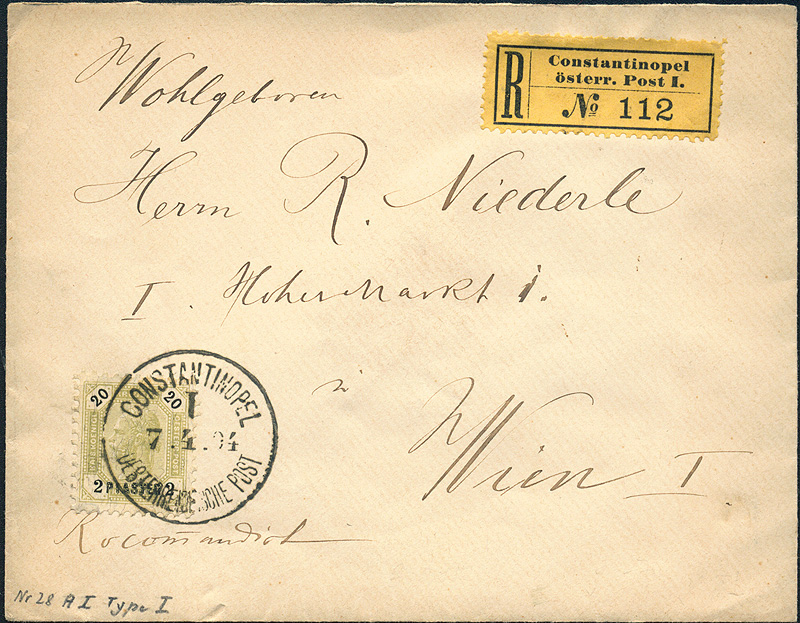 R
Constantinopel
österr. Post I.
No 112
Wohlgeboren
Herrn R. Niederle
I. Hoher Markt 1.
in
Wien I
20 20
2 PIASTER 2
CONSTANTINOPEL
I
7.4.94
OESTERREICHISCHE POST
Recomandirt
Nr 28 A I Type I